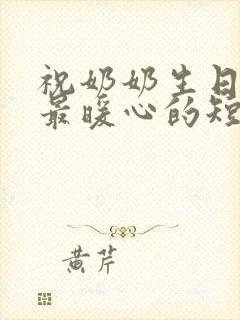 祝奶奶生日
最暖心的短
黄芹